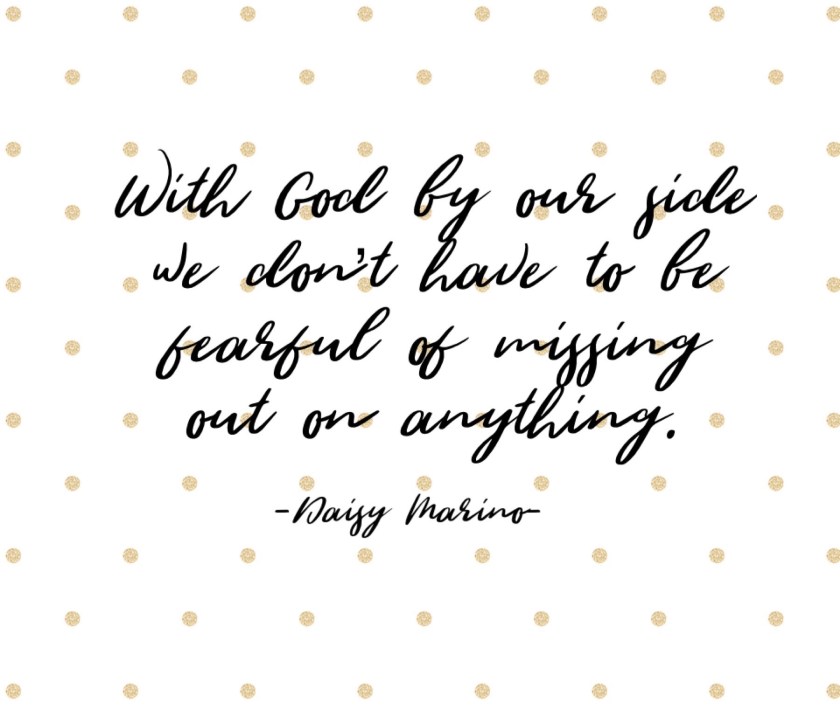 With God by our side
we don't have to be
fearful of missing
out on anything.
-Daisy Marino-